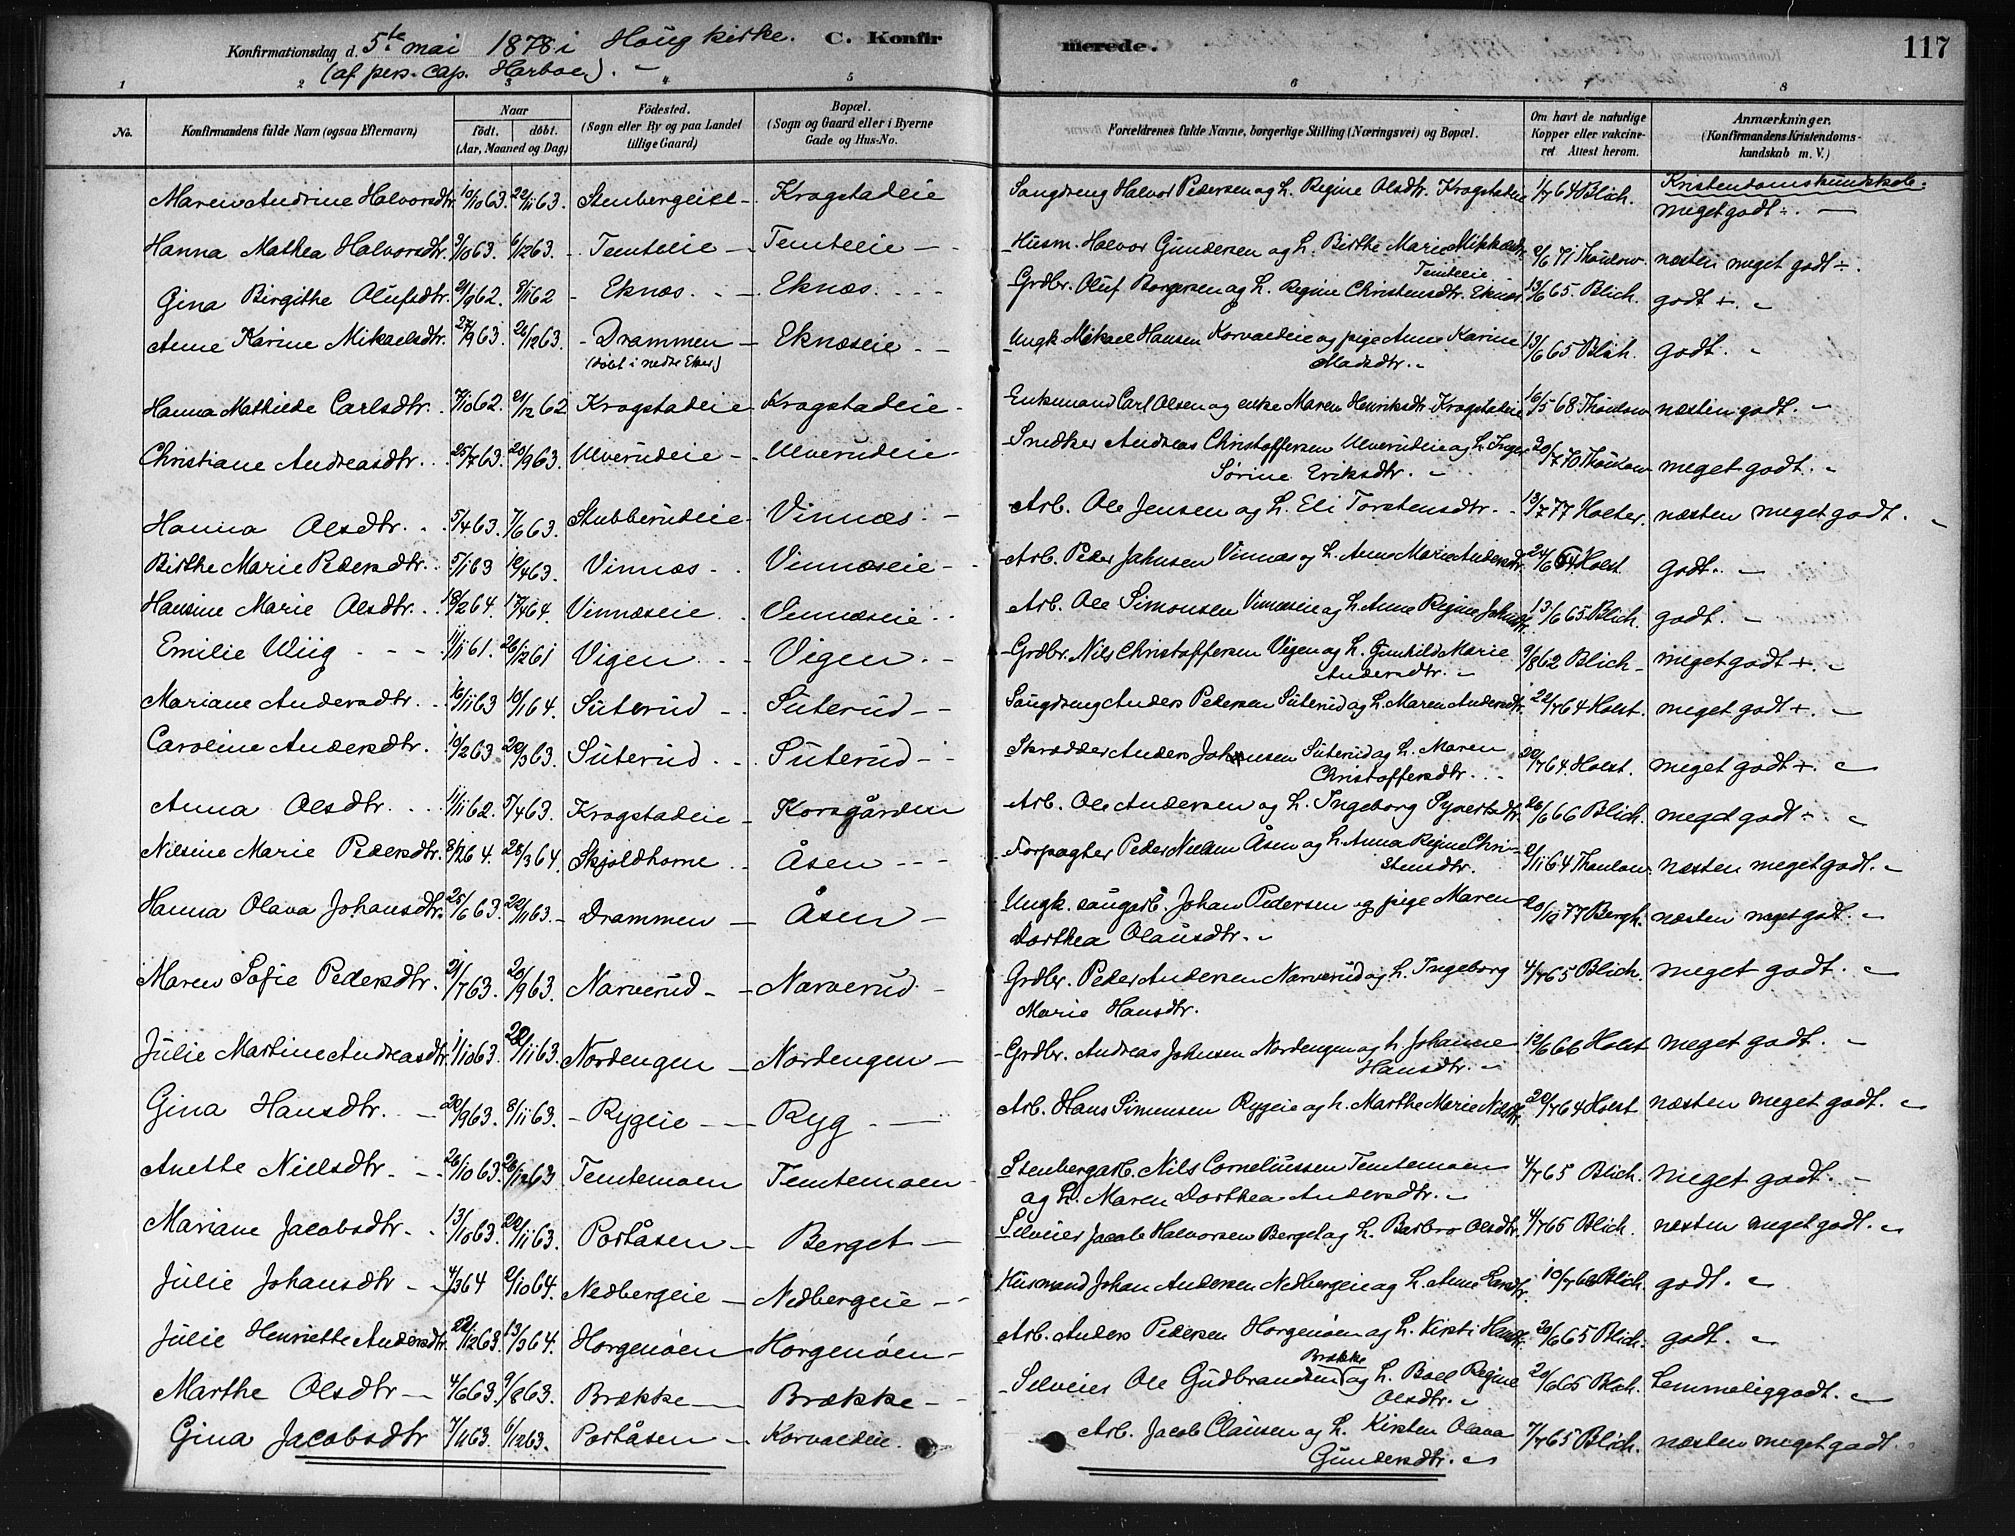 Konfirmationsdag d. 5te mai 1878 i Houg kirke. C. Konfirmerede. 117
(af pers. cap. Harboe). -
1 2 3 4 5 6 7 8
No.
Konfirmandens fulde Navn (ogsaa Efternavn)
Naar
födt. döbt.
(Aar, Maaned og Dag)
Födested.
(Sogn eller By og paa Landet tillige Gaard)
Bopæl.
(Sogn og Gaard eller i Byerne Gade og Hus-No.
Forældrenes fulde Navne, borgerlige Stilling (Næringsvei) og Bopæl.
Om havt de naturlige Kopper eller vakcineret. Attest herom.
Anmærkninger.
(Konfirmandens Kristendomskundskab m. V.)
Kristendomskundskab.
Maren Andrine Halvorsdtr. 10/10 63. 22/11 63. Stenbergeiet - Krogstadeie Saugdreng Halvor Pedersen og h. Regine Olsdtr. Krogstadeie 1/7 64 Blich. meget godt ÷.
Hanna Mathea Halvorsdtr. 3/10 63. 6/12 63. Temteeie - Temteeie - Husm. Halvor Gundersen og h. Birthe Marie Mikkelsdtr. Temteeie 9/6 71 Thaulow. næsten meget godt ÷.
Gina Birgithe Olufsdtr. 21/9 62. 9/11 62 - Eknæs. - Eknæs. Grdbr. Oluf Borgersen og h. Regine Christensdtr. Eknæs 13/6 65. Blich. godt +.
Anne Karine Mikaelsdtr. 27/9 63. 26/12 63. - Drammen - Eknæseie. Ungk. Mikael Hansen Korvaldeie og pige Anne Karine 13/6 65 Blich. godt.
(döbt i nedre Eker) Madsdtr.
Hanna Mathilde Carlsdtr. 7/10 62. 21/12 62 Krogstadeie Krogstadeie - Enkemand Carl Olsen og enke Maren Henriksdtr. Krogstadeie 16/5 68 Thaulow næsten godt.
Christiane Andreasdtr. 25/7 63. 20/9 63. Ulverudeie - Ulverudeie - Snedker Andreas Christoffersen Ulverudeie og h. Inger 20/7 70 Thaulow meget godt.
Sørine Eriksdtr.
Hanna Olsdtr. 5/4 63. 7/6 63. Stubberudeie Vinnæs. - Arb. Ole Jensen og h. Eli Torstensdtr. 13/7 77 Holter. næsten meget godt.
Birthe Marie Pedersdtr. 5/1 63 12/4 63. Vinnæs. Vinnæseie - Arb. Peder Jahnsen Vinnæs og h. Anne Marie Andersdtr. 24/6 64 Holst godt.
Hansine Marie Olsdtr. 18/2 64. 17/4 64. Vinnæseie. Vinnæseie. Arb. Ole Simonsen Vinnæseie og h. Anne Regine Jahnsdtr. 13/6 65. Blich. godt.
Emilie Wiig 11/11 61. 26/12 61 Vigen Vigen. - Grdbr. Nils Christoffersen Vigen og h. Gunhild Marie 9/8 62 Blich - meget godt +.
Andersdtr.
Mariane Andersdtr. 16/11 63 10/1 64. Süterud - Süterud - Saugdreng Anders Pedersen Süterud og h. Maren Andersdtr. 22/7 64 Holst. meget godt +.
Caroline Andersdtr. 10/2 63 20/3 63. Süterud. Süterud - Skrædder Anders Johansen Süterud og h. Maren 20/7 64. Holst. meget godt +.
Christoffersdtr.
Anna Olsdtr. 1/11 62. 5/4 63. Krogstadeie - Korsgården Arb. Ole Andersen og h. Ingeborg Syvertsdtr. 26/6 66 Blich. meget godt ÷.
Nilsine Marie Pedersdtr. 8/1 64. 28/3 64. Skjoldhorne. Åsen - Forpagter Peder Nielsen Åsen og h. Anna Regine Chri- 2/11 64 Thaulow næsten meget godt.
stensdtr.
Hanna Olava Johansdtr. 25/6 63. 22/11 63. - Drammen - Åsen - Ungk. saugarb. Johan Pedersen og pige Maren 20/10 77 Bergh. næsten meget godt.
Dorthea Olausdtr.
Maren Sofie Pedersdtr. 21/7 63. 20/9 63. Narverud - Narverud - Grdbr. Peder Andersen Narverud og h. Ingeborg 4/7 65 Blich. meget godt.
Marie Hansdtr.
Julie Martine Andreasdtr. 1/10 63. 22/11 63. Nordengen - Nordengen - Grdbr. Andreas Johnsen Nordengen og h. Johanne 12/6 66 Holst meget godt.
Hansdtr.
Gina Hansdtr. - 20/9 63. 8/11 63. - Rygeie - Ryg. - Arb. Hans Simensen Rygeie og h. Marthe Marie Nilsdtr. 20/7 64 Holst næsten meget godt.
Anette Nielsdtr. 26/10 63. 26/12 63 Temtemoen Temtemoen Stenbergarb. Nils Corneliussen Temtemoen 4/7 65 Blich. meget godt.
og h. Maren Dorthea Andersdtr.
Mariane Jacobsdtr. 13/10 63. 22/11 63. Portåsen - Berget - Selveier Jacob Halvorsen Berget og h. Barbro Olsdtr. 4/7 65 Blich. næsten meget godt.
Julie Johansdtr. 4/3 64 2/10 64. Nedbergeie - Nedbergeie - Husmand Johan Andersen Nedbergeie og h. Anne Larsdtr. 10/7 66 Blich. godt.
Julie Henriette Andersdtr. 22/12 63. 13/3 64. Horgenöen Horgenöen - Arb. Anders Pedersen Horgenöen og h. Kirsti Hansdtr. 20/6 65 Blich. godt.
Marthe Olsdtr - 4/6 63. 9/8 63. Brække - Brække - Selveier Ole Gudbrandsen Brække og h. Boel Regine 20/6 65 Blich. temmelig godt.
Olsdtr.
Gina Jacobsdtr 7/11 63. 6/12 63. Portåsen - Korvaldeie. Arb. Jacob Clausen og h. Kirsten Olava 7/7 65 Blich. næsten meget godt.
Gundersdtr.